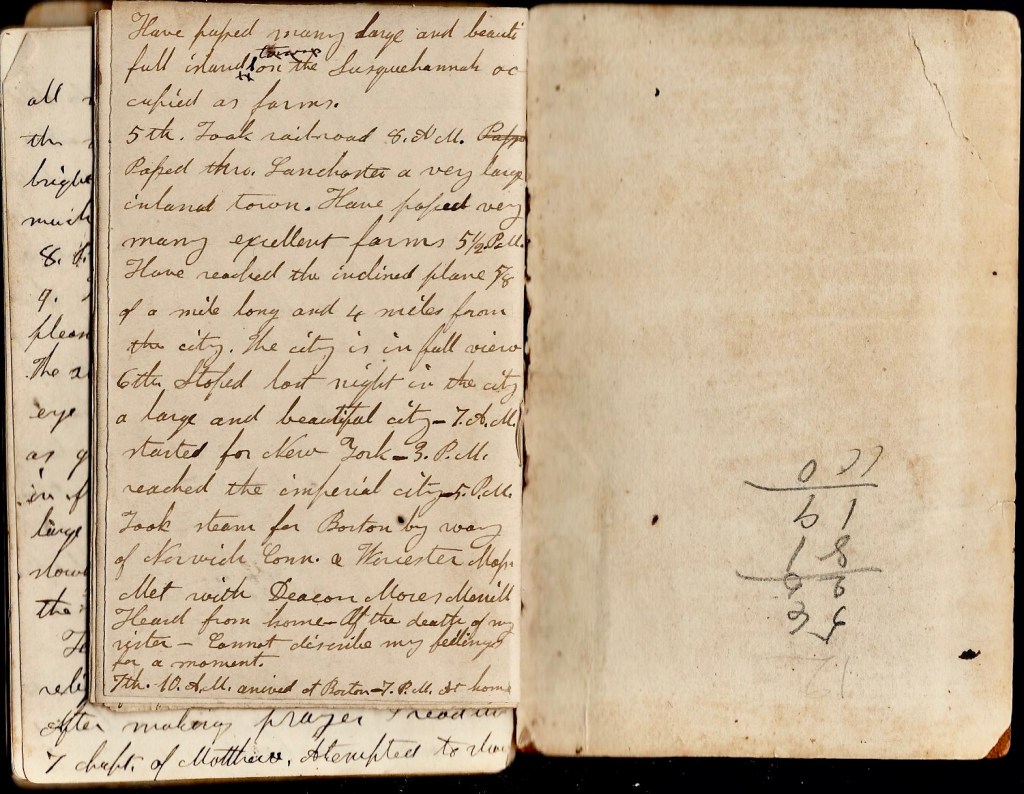 Have passed many large and beauti
full island on the Susquehannah oc
cupied as farms.
5th. Took railroad 8. A.M.
Passed thro. Lanchaster a very large
inland town. Have passed very
many excellent farms 5 1/2 P.M.
Have reached the inclined plane 5/8
of a mile long and 4 miles from
the city. The city is in full view
6th Stoped last night in the city
a large and beautiful city – 7. A.M.
started for New York – 3. P.M.
reached the imperial city – 5. P.M.
Took steam for Boston by way
of Norwich Conn. & Worcester Mass.
Met with Deacon Moses Merrill
Heard from home – Of the death of my
sister – Cannot describe my feelings
for a moment.
7th. 10. A.M. arrived at Boston – 7. P.M. At home
all
th
bright
much
8.
9.
pleas
The
eye
as
in
large
slow
the
To
reli
After making prayer I read in
7 chapt. of Matthew. Attempted to